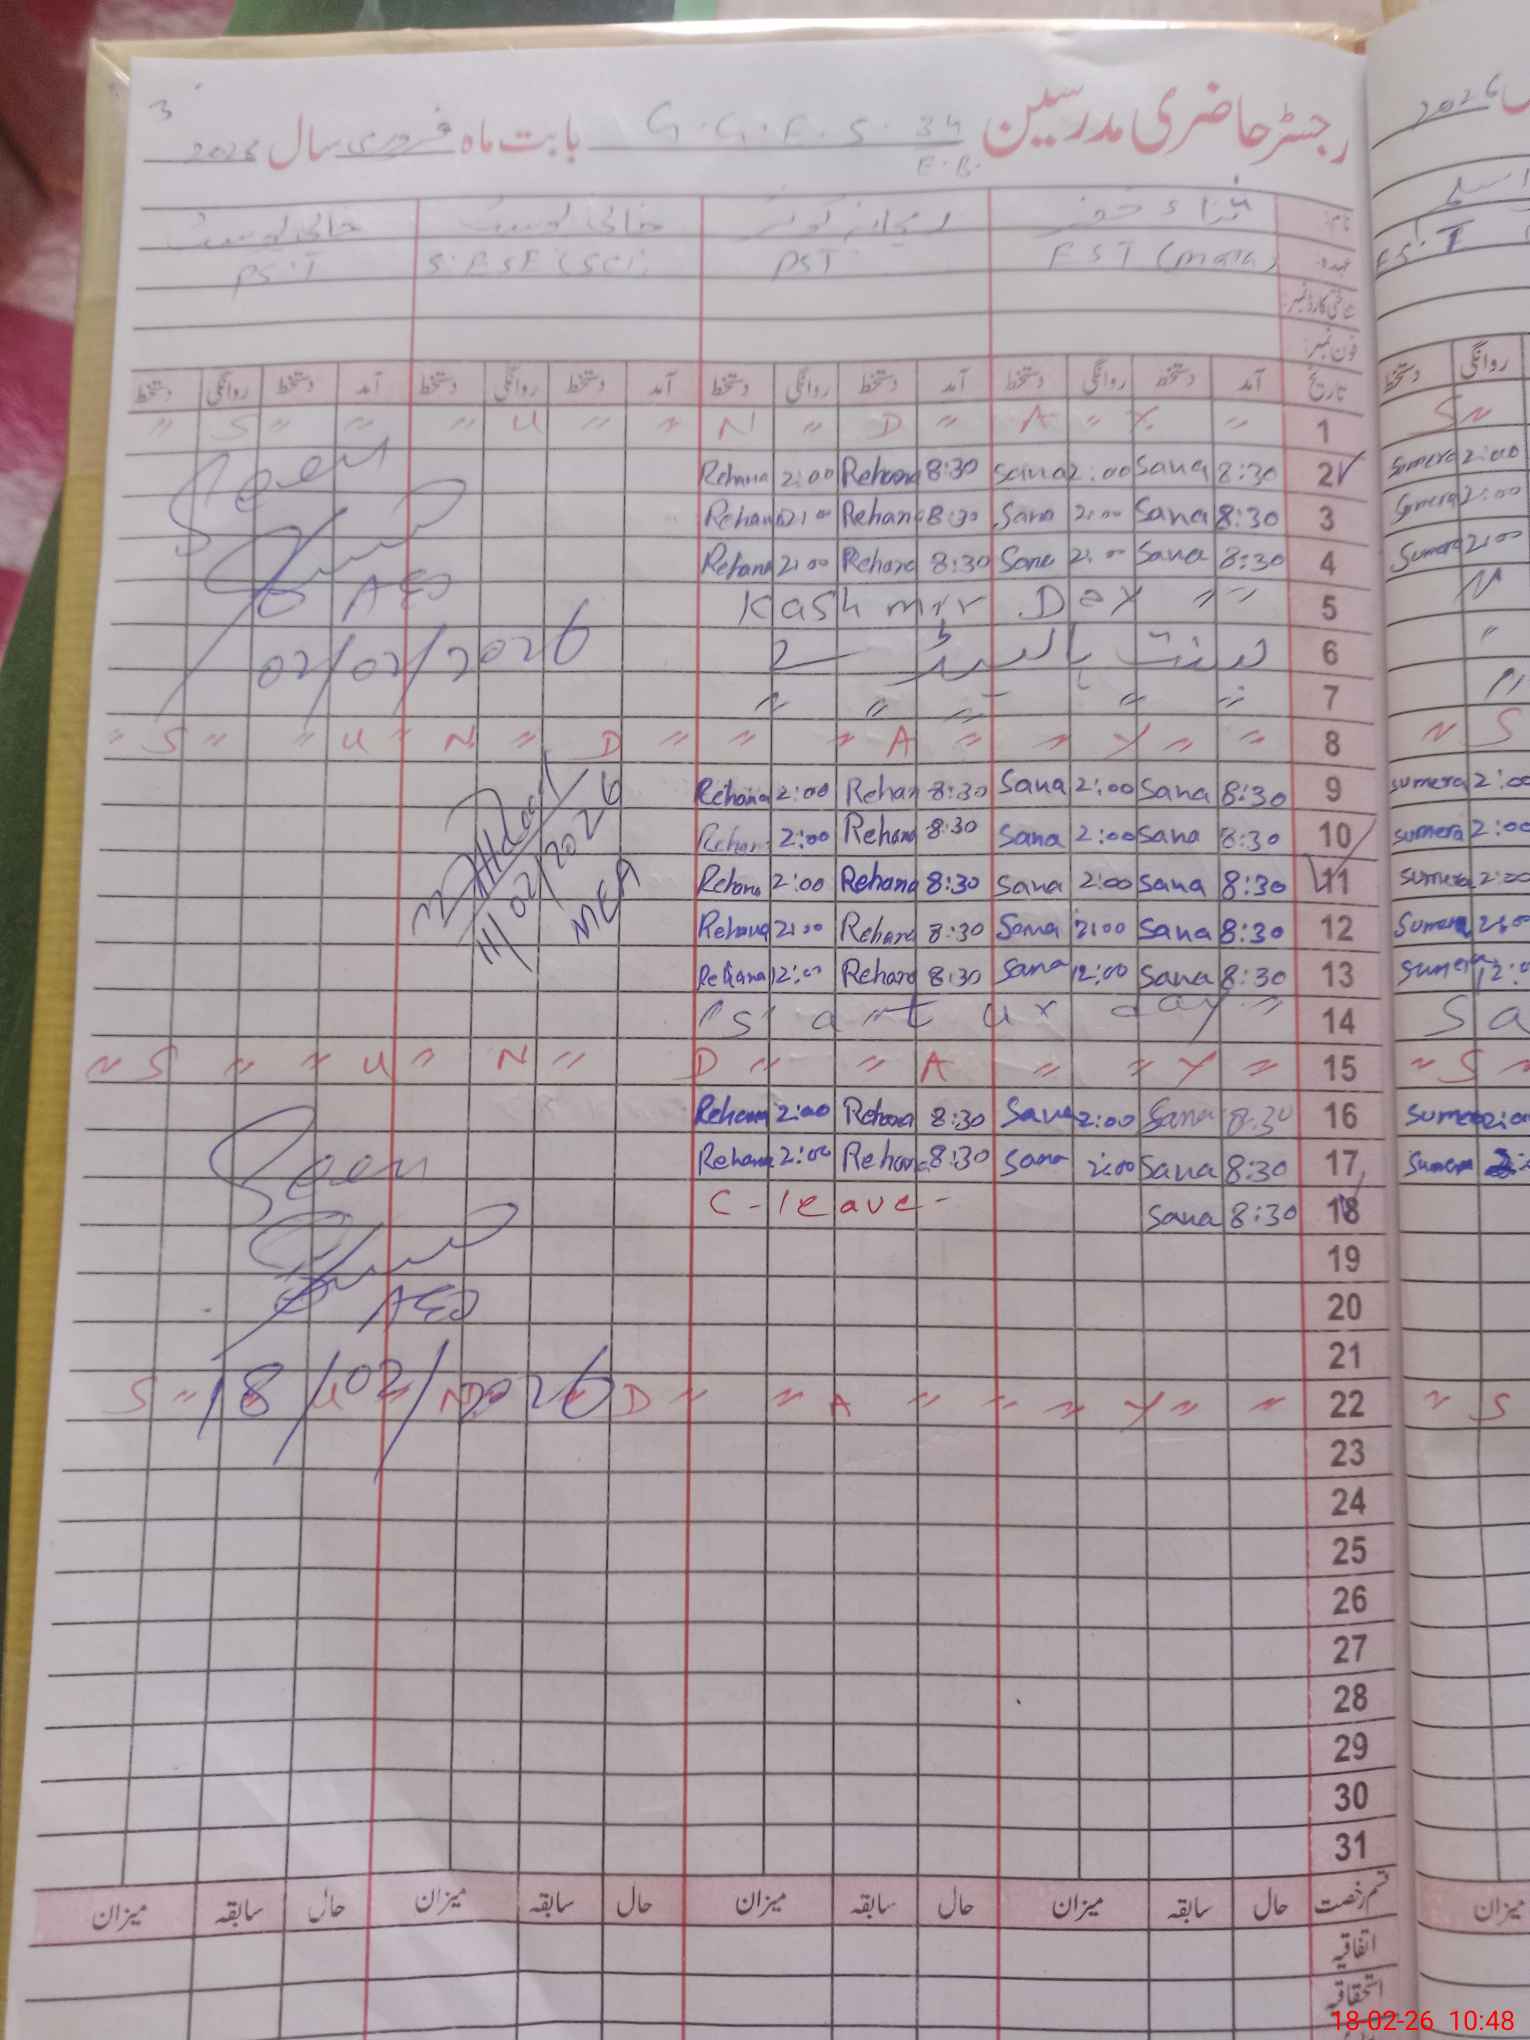 3
رجسٹر حاضری مدرسین G.G.E.S. 34 بابت ماہ فروری سال 2026
E.B.
2026
نام
ریحانہ کوثر خالی پوسٹ خالی پوسٹ
عہدہ EST (Math) PST S.ESE (SCI) PS.T
ES.T
شناختی کارڈ نمبر
فون نمبر
تاریخ آمد دستخط روانگی دستخط آمد دستخط روانگی دستخط آمد دستخط روانگی دستخط آمد دستخط روانگی دستخط
روانگی دستخط
" S " " " U " " N " D " A " Y " 1 S "
Seen
Rehana 2:00 Rehana 8:30 Sana 2:00 Sana 8:30 2 Sumera 2:00
Rehana 2:00 Rehana 8:30 Sana 2:00 Sana 8:30 3 Sumera 2:00
Rehana 2:00 Rehana 8:30 Sana 2:00 Sana 8:30 4 Sumera 2:00
AEO
Kashmir Day " " 5 "
02/02/2026
6 "
" " " " " 7 "
" S " " U " N " D " " " A " " Y " " 8 " S
Rehana 2:00 Rehan 8:30 Sana 2:00 Sana 8:30 9 Sumera 2:00
Rehana 2:00 Rehana 8:30 Sana 2:00 Sana 8:30 10 Sumera 2:00
Rehana 2:00 Rehana 8:30 Sana 2:00 Sana 8:30 11 Sumera 2:00
11/02/2026
MEA
Rehana 2:00 Rehana 8:30 Sana 2:00 Sana 8:30 12 Sumera 2:00
Rehana 12:00 Rehana 8:30 Sana 12:00 Sana 8:30 13 Sumera 12:0
" s a t u r day " 14 Sa
" S " " U " N " D " " A " " Y " 15 " S "
Rehana 2:00 Rehana 8:30 Sana 2:00 Sana 8:30 16 Sumera 2:00
Seen
Rehana 2:00 Rehana 8:30 Sana 2:00 Sana 8:30 17 Sumera
C-leave- Sana 8:30 18
19
AEO
20
21
18/02/2026
S " " U " N " D " " A " " " Y " " 22 " S
23
24
25
26
27
28
29
30
31
قسم رخصت حال سابقہ میزان حال سابقہ میزان حال سابقہ میزان حال سابقہ میزان
میزان
اتفاقیہ
استحقاقیہ
18-02-26 10:48